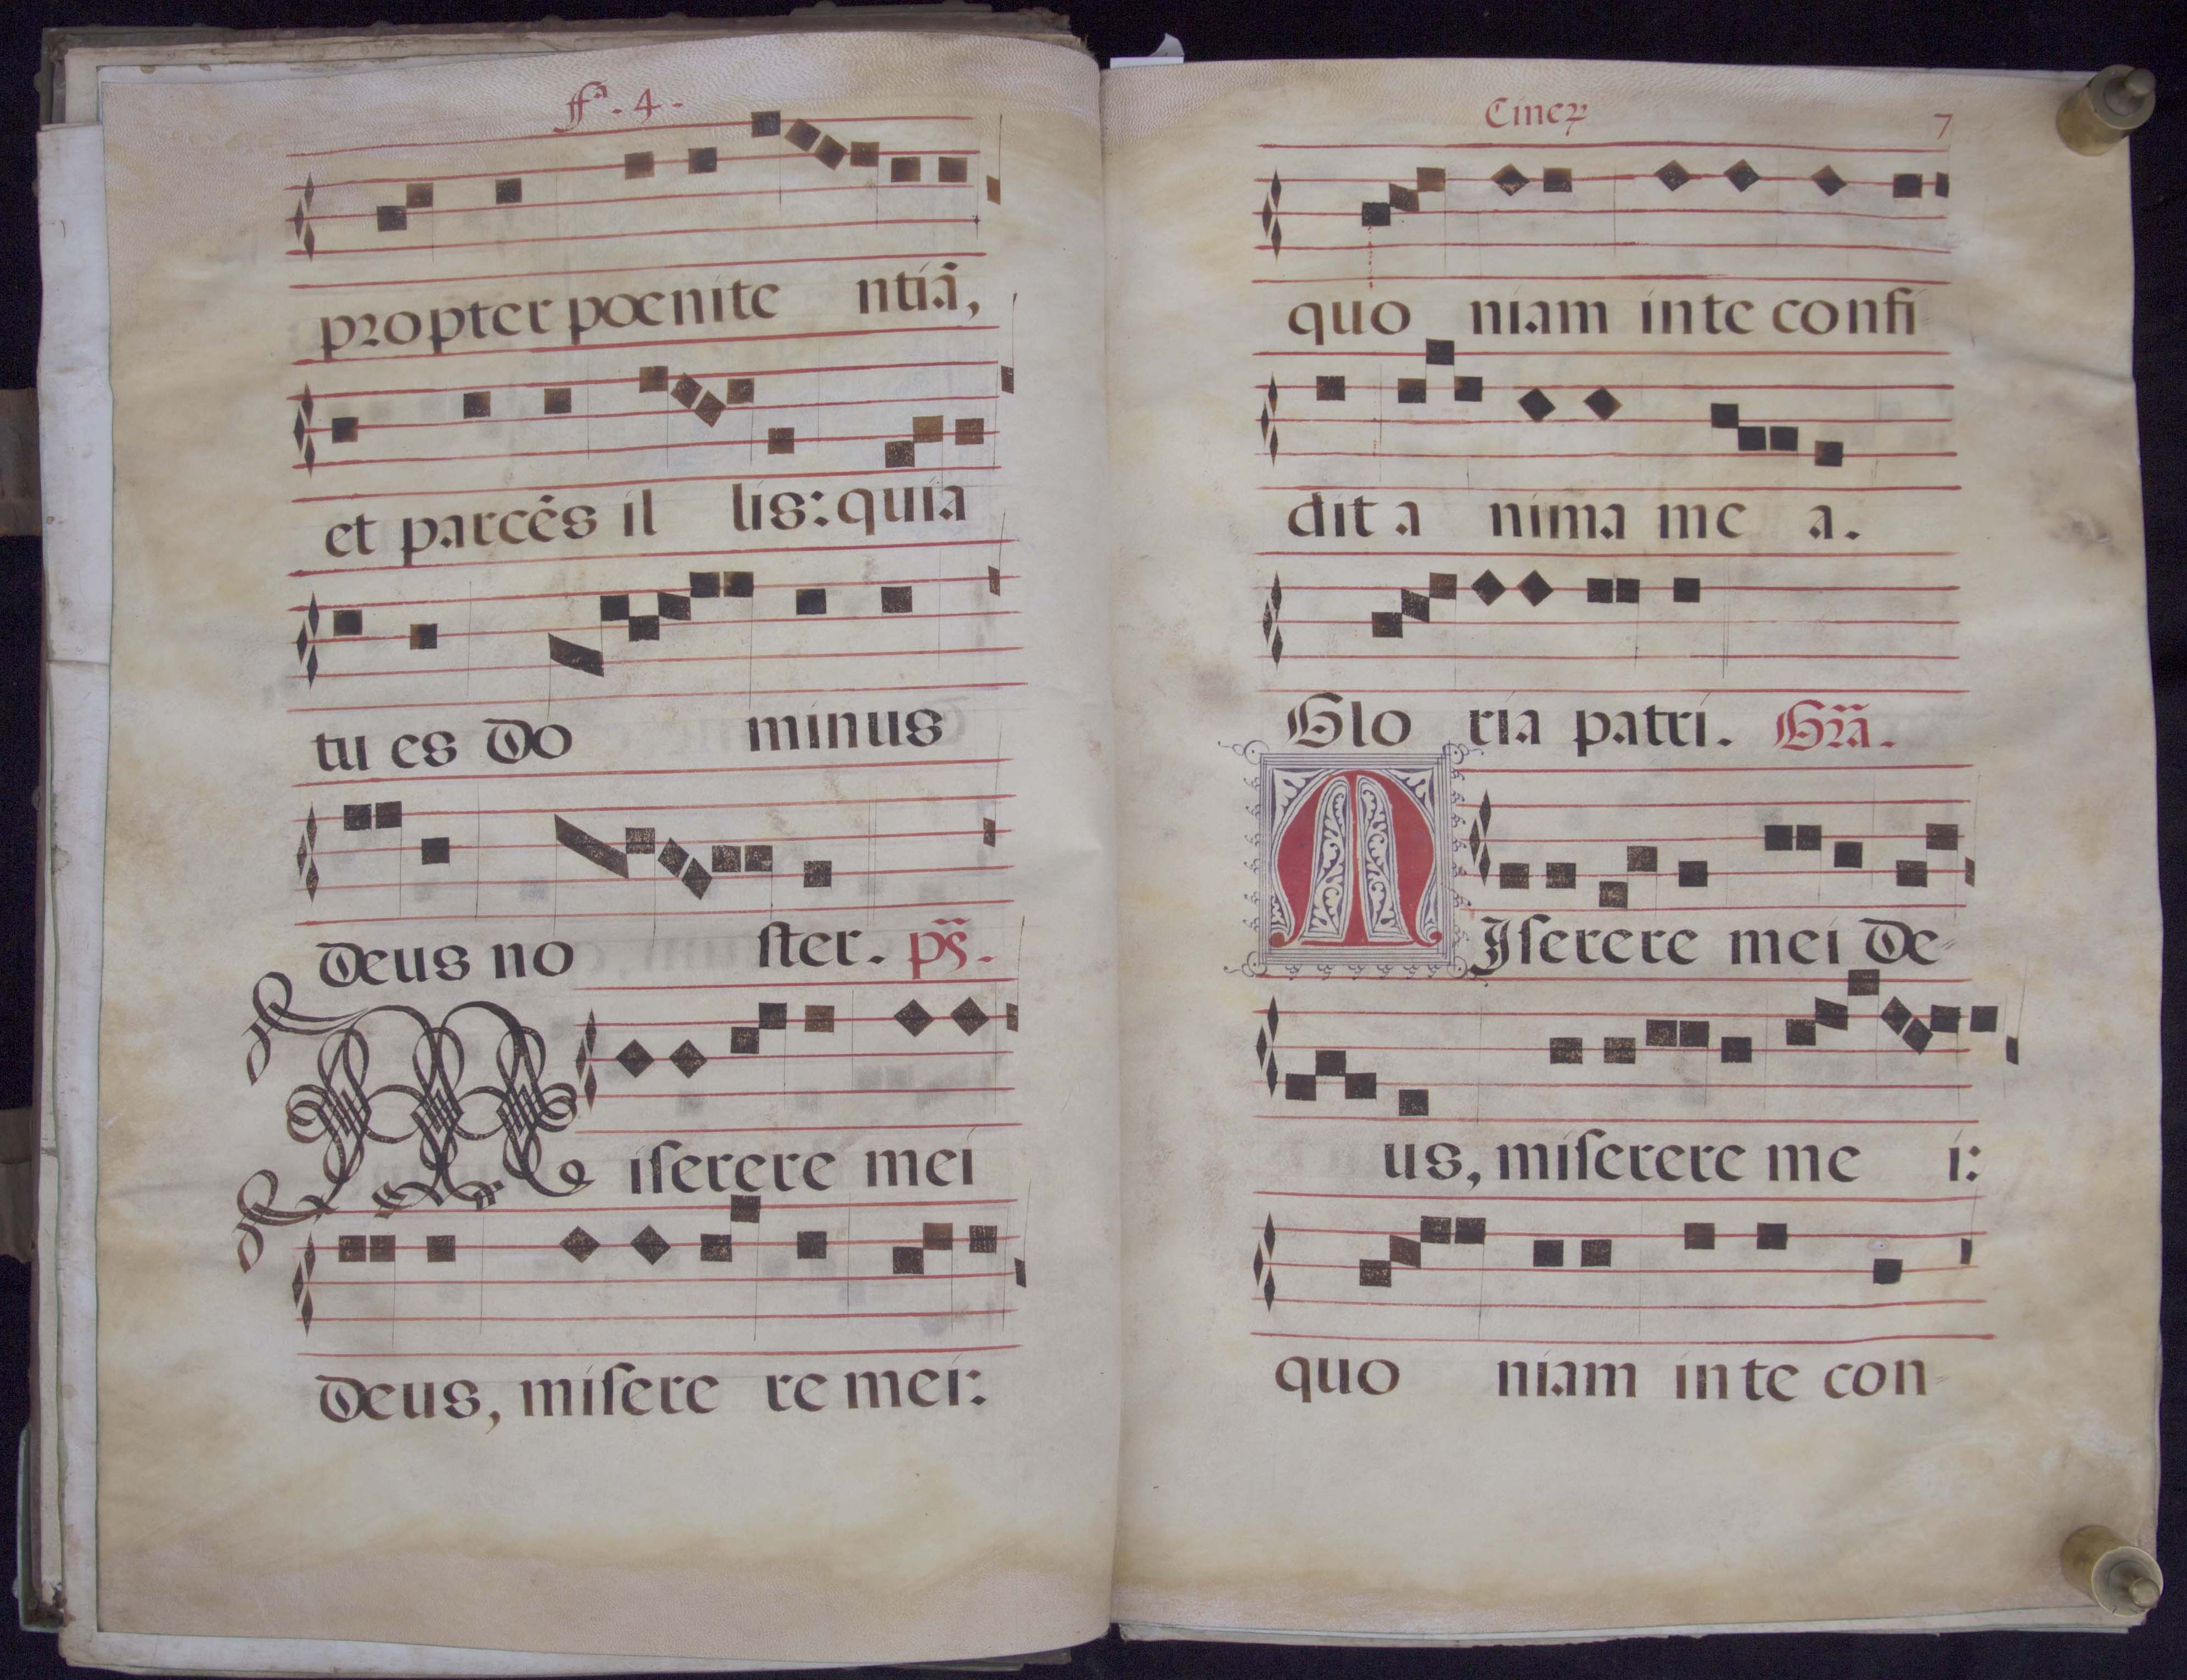 ffª. 4.
propter pœnite ntiã,
et parcẽs il lis: quia
tu es Do minus
Deus no ster. ps̃.
Miserere mei
Deus, misere re mei:
Cineꝝ
7
quo niam in te confi
dit a nima me a.
Glo ria patri. Gr̃a.
MIserere mei De-
us, miserere me i:
quo niam in te con-